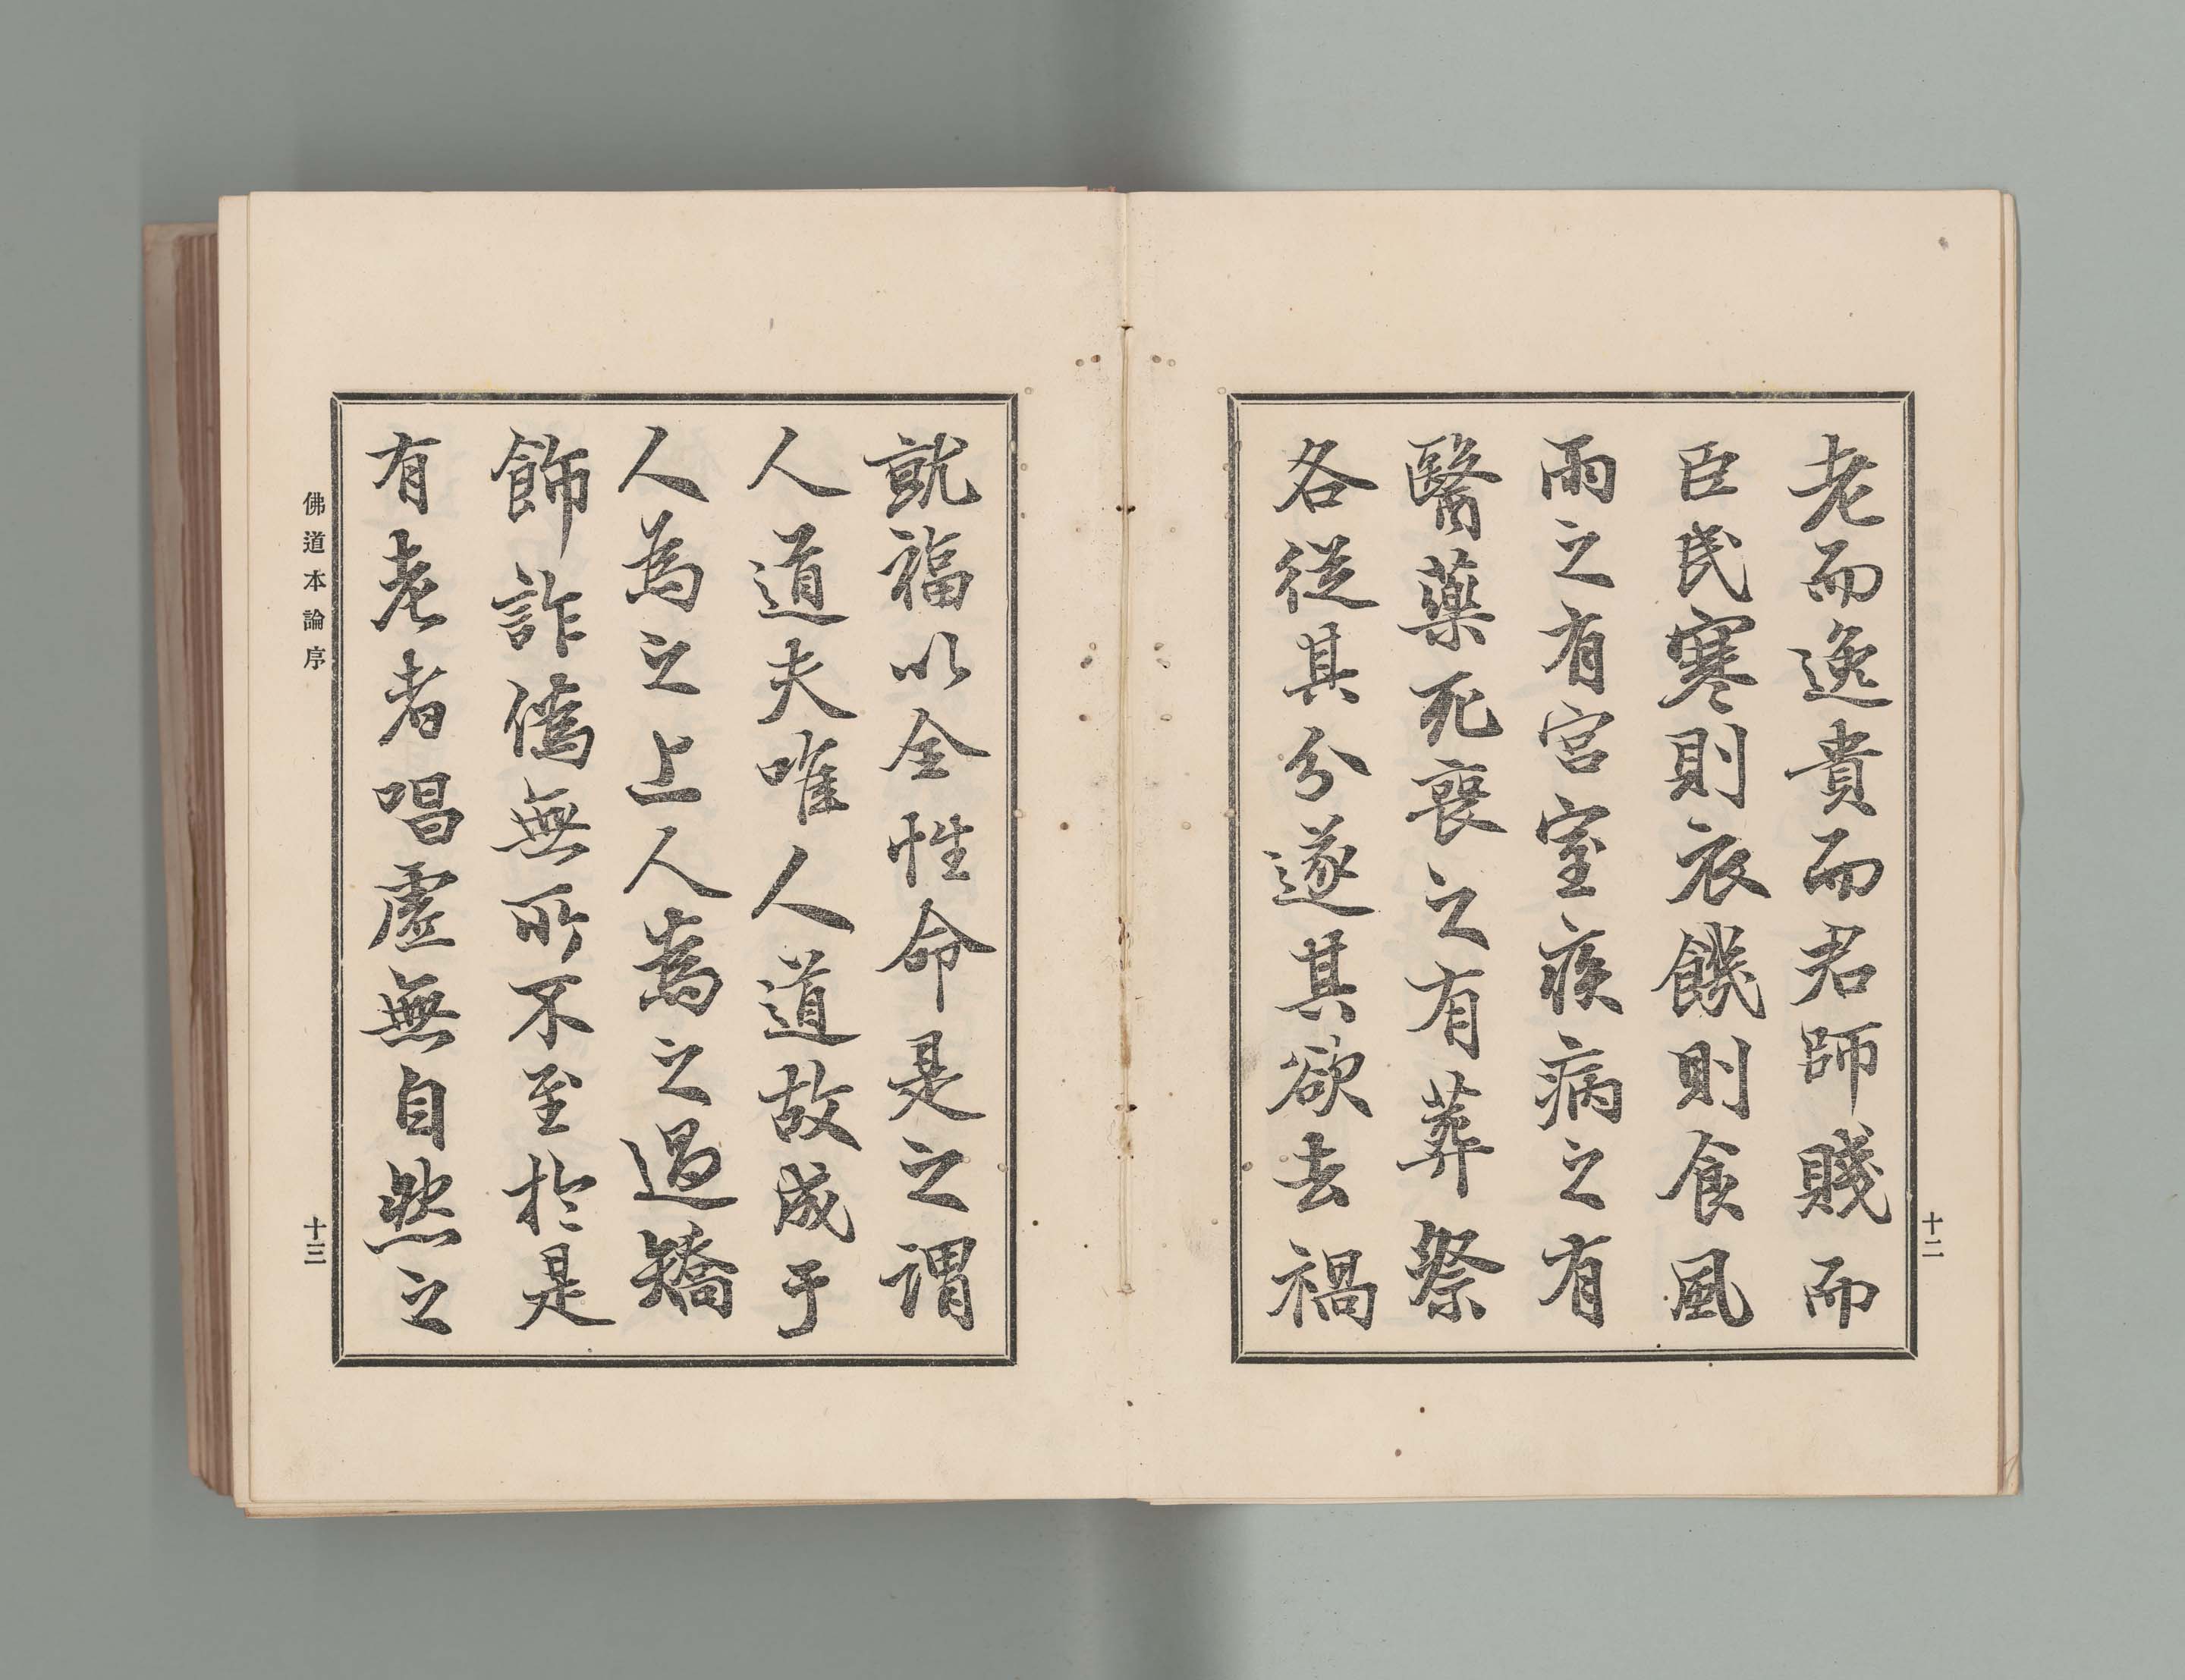 老而逸貴而君師賤而
臣民寒則衣饑則食風
雨之有宮室疾病之有
醫藥死喪之有葬祭
各從其分遂其欲去禍
十二
就福以全性命是之謂
人道夫唯人道故成于
人為之上人為之過矯
飾詐偽無所不至於是
有老者唱虛無自然之
佛道本論序
十三